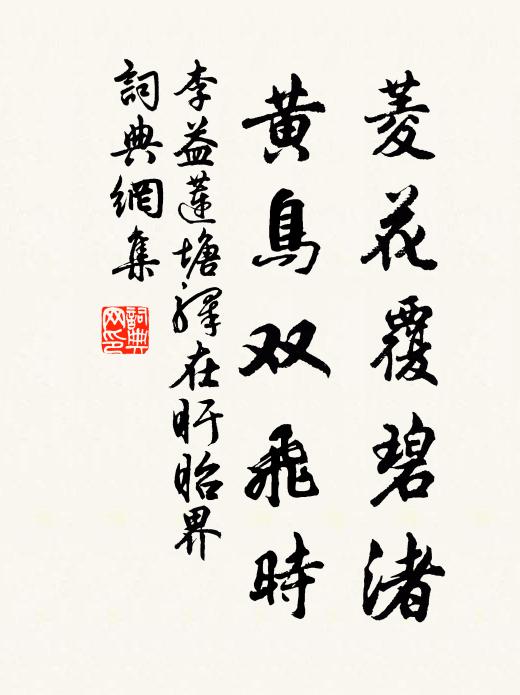 菱花覆碧渚
黃鳥双飛時
李益蓮塘驛在盱眙界
詞典網集
詞典网印